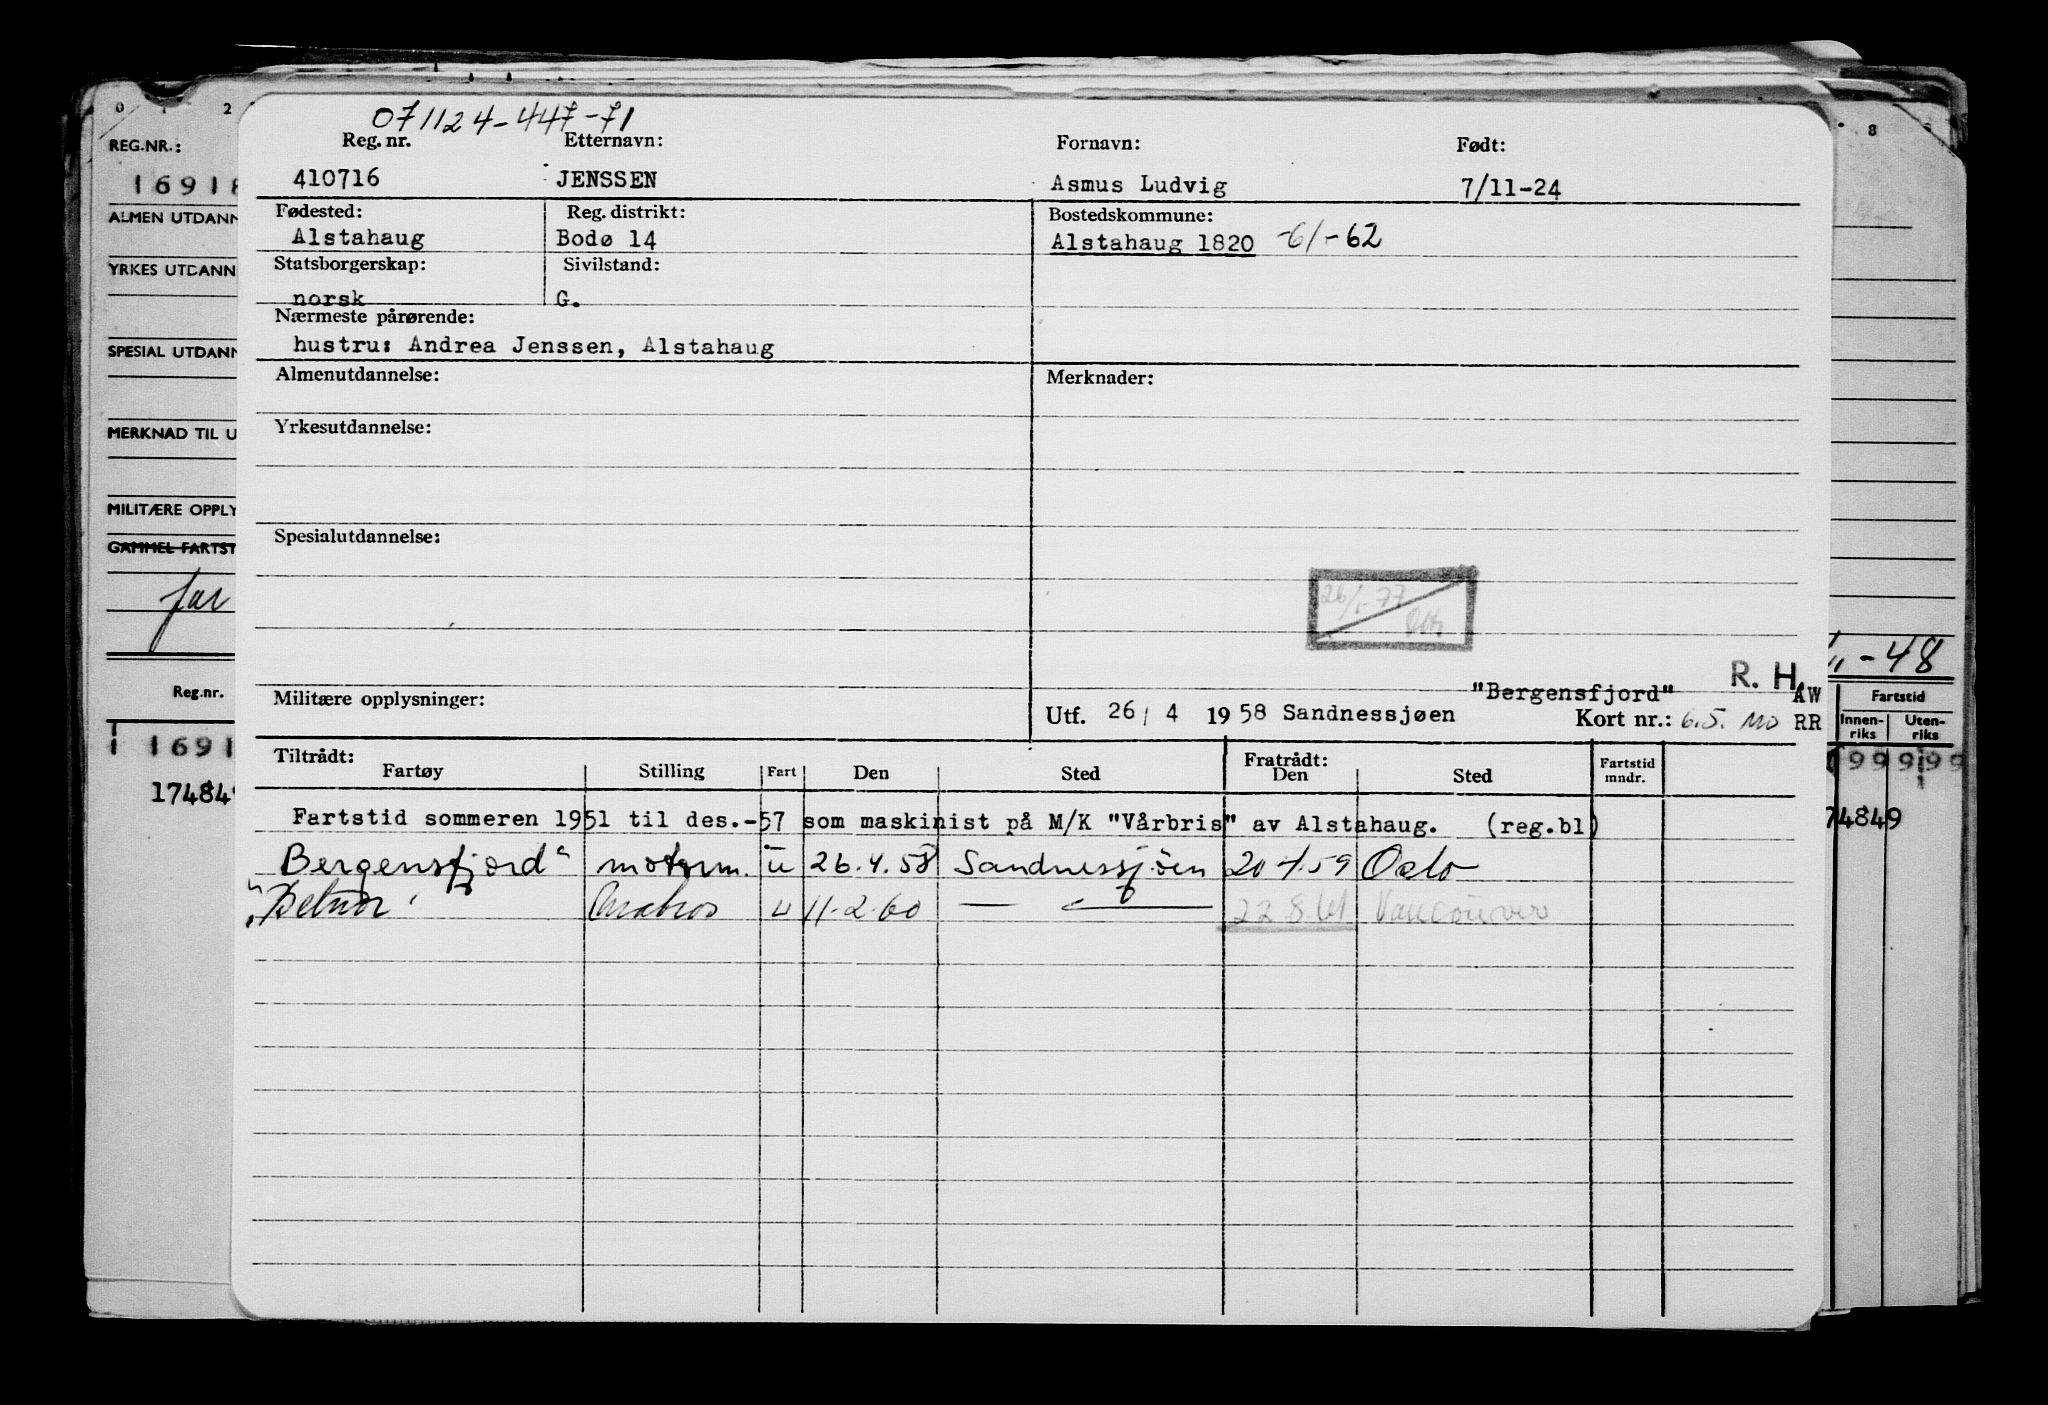 071124-447-71
Reg. nr. Etternavn: Fornavn: Født:
410716 JENSSEN Asmus Ludvig 7/11-24
Fødested: Reg. distrikt: Bostedskommune:
Alstahaug Bodø 14 Alstahaug 1820 -61-62
Statsborgerskap: Sivilstand:
norsk G.
Nærmeste pårørende:
hustru: Andrea Jenssen, Alstahaug
Almenutdannelse: Merknader:
Yrkesutdannelse:
Spesialutdannelse:
26/1-77
R. H.
"Bergensfjord" AW
Militære opplysninger: Utf. 26/4 1958 Sandnessjøen Kort nr.: 6.5. MO RR
Tiltrådt: Fratrådt:
Fartøy Stilling Fart Den Sted Den Sted Fartstid mndr.
Fartstid sommeren 1951 til des.-57 som maskinist på M/K "Vårbris" av Alstahaug. (reg.bl)
Bergensfjord" motorm. u 26.4.58 Sandnessjøen 20 1.59 Oslo
u 11.2.60 — " — 22 8 61 Vancouver
0 1 2
REG.NR.:
16918
ALMEN UTDANN
YRKES UTDANN
SPESIAL UTDANN
MERKNAD TIL U
MILITÆRE OPPLY
GAMMEL FARTST
far
Reg.nr.
1 1691
174849
8
-48
Fartstid
Innen-riks Uten-riks
99999
74849